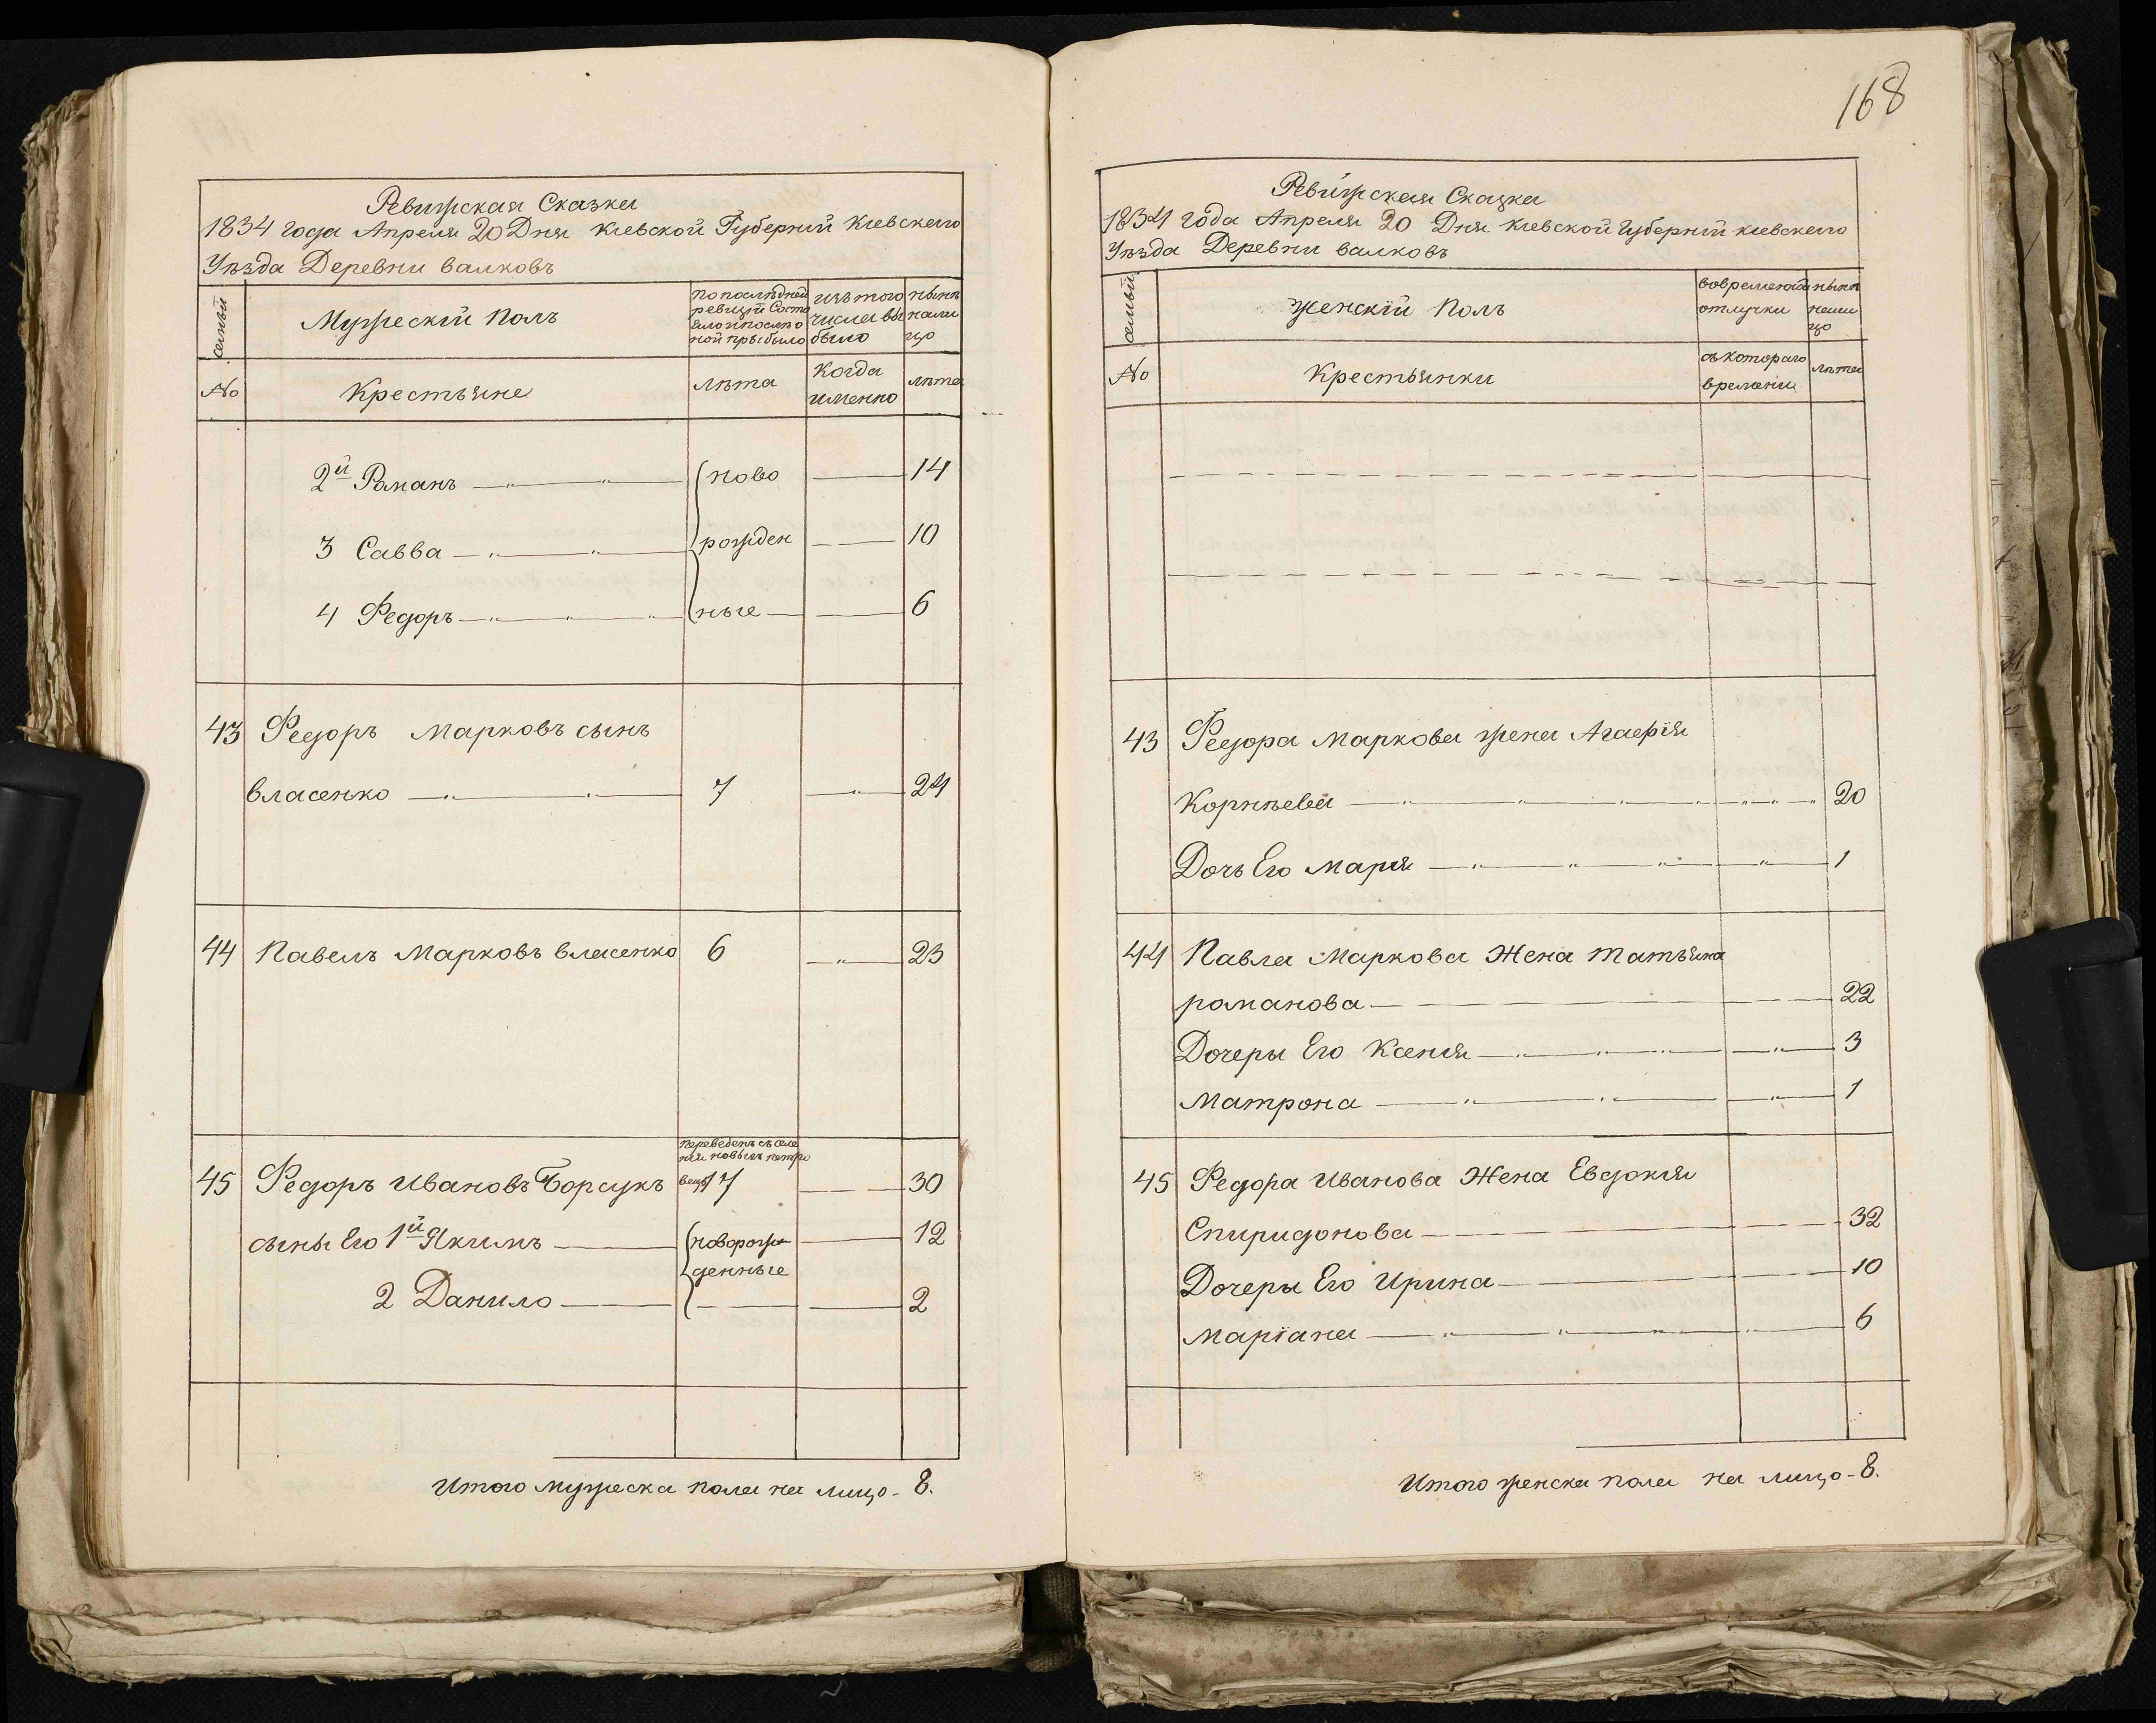 Ревижская Сказка
1834 года Апреля 20 Дня Киевской Губернïи Киевскаго
Уѣзда Деревни валковъ
семьи
Мужескiй Полъ
по послѣдней
ревизïи Состо
яло и послѣ о
ной прыбыло
изъ того
числа вы
было
нынѣ
нали
цо
No
Крестьяне
лѣта
когда
именно
лѣта
2й Романъ
ново
14
3 Савва
рожден
10
4 Федоръ
ные
6
43 Федоръ Марковъ сынъ
власенко 7 24
44 Павелъ Марковъ власенко 6 23
переведенъ съ селе
нïя новыхъ петри
45 Федоръ Ивановъ Борсукъ вецъ 17 30
сыны Его 1й Якимъ новорож 12
денные
2 Данило 2
Итого мужеска пола на лицо - 8.
168
Ревижская Сказка
1834 года Апреля 20 Дня киевской Губернïи киевскаго
Уѣзда Деревни валковъ
семьи
женскïй Полъ
во временой
отлучки
нынѣ
нали
цо
No
Крестьянки
съ котораго
времени
лѣта
43 Федора Маркова жена Агафïя
Корнѣева 20
Дочь Его Марïя 1
44 Павла Маркова Жена татьяна
романова 22
Дочеры Его Ксенïя 3
Матрона 1
45 Федора Иванова Жена Евдокïя
Спиридонова 32
Дочеры Его Ирина 10
Марïана 6
Итого женска пола на лицо - 8.